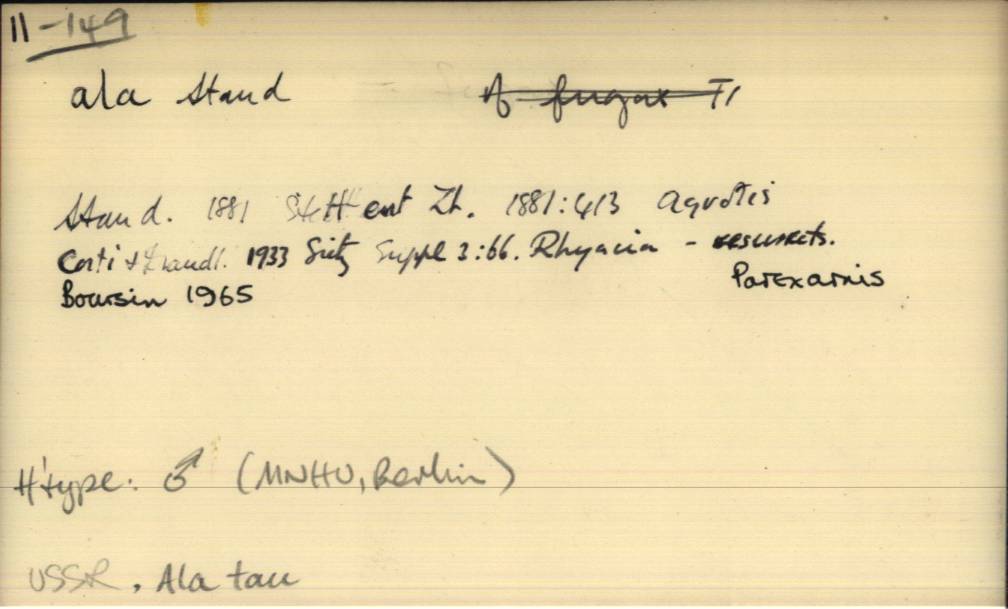 11-149
ala Staud A fugax Tr
Staud. 1881 Stett ent Zt. 1881:413 Agrotis
Corti + Draudt. 1933 Seitz Suppl 3:66. Rhyacia -
Boursin 1965 Parexarnis
H'type: ♂ (MNHU, Berlin)
USSR, Ala tau